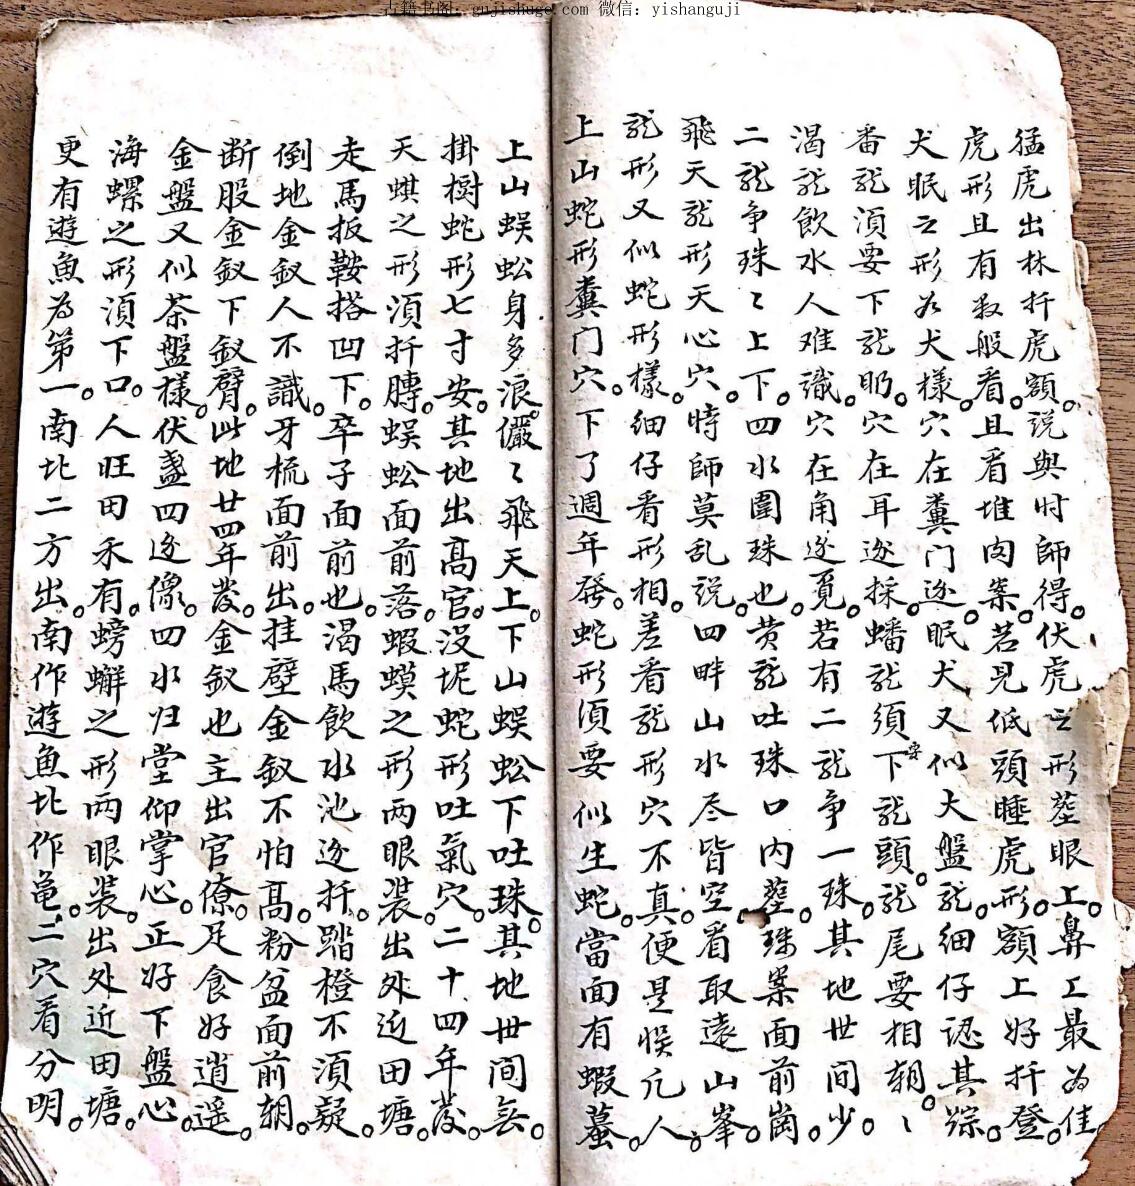 古籍书阁：gujishuge.com 微信：yishanguji
猛虎出林扦虎額。說與时師得。伏虎之形塟眼上。鼻上最为佳
虎形且有数般看。且看堆肉案。若見低頭睡虎形。額上好扦登。
犬眠之形如犬樣。穴在糞门边。眠犬又似大盤龙。細仔認其踪。
番龙湏要下龙眀。穴在耳边採。蟠龙須下安龙頭。龙尾要相朝。〻
渴龙飲水人难識。穴在角边覓。若有二龙争一珠。其地世间少。
二龙争珠〻上下。四水圍珠也。黄龙吐珠口内塟。珠案面前崗。
飛天龙形天心穴。時師莫乱說。四畔山水尽皆空。看取遠山峯。
龙形又似蛇形樣。細仔看形相。差看龙形穴不真。便是悮凢人。
上山蛇形糞门穴。下了週年發。蛇形湏要似生蛇。當面有蝦蟇。
上山蜈蚣身多浪。儼〻飛天上。下山蜈蚣下吐珠。其地世间無。
掛樹蛇形七寸安。其地出高官。没坭蛇形吐氣穴。二十四年發。
天蜞之形湏扦膞。蜈蚣面前落。蝦蟆之形两眼裝。出外近田塘。
走馬扳鞍搭凹下。卒子面前也。渴馬飲水池边扦。踏橙不湏疑。
倒地金釵人不識。牙梳面前出。挂壁金釵不怕高。粉盆面前朝。
断股金釵下釵臂。此地廿四年發。金釵也主出官僚。足食好逍遥。
金盤又似茶盤樣。伏盞四边像。四水归堂仰掌心。正好下盤心。
海螺之形湏下口。人旺田禾有。螃蠏之形两眼裝。出处近田塘。
更有遊魚为第一。南北二方出。南作遊魚北作亀。二穴看分明。